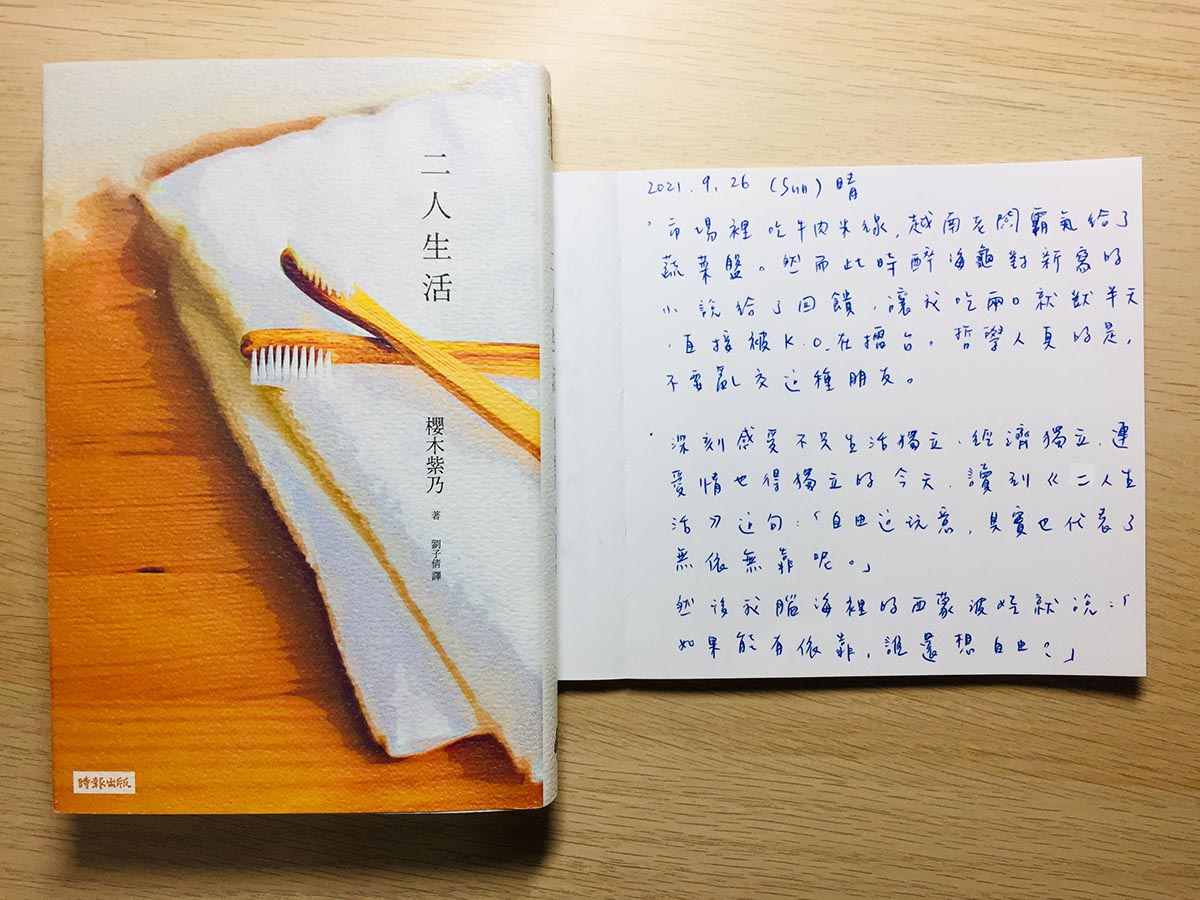 二人生活
櫻木紫乃 著
劉子倩 譯
時報出版
2021.9.26 (Sun) 晴
·市場裡吃牛肉米線,越南老闆霸氣給了
蔬菜盤。然而此時醉海龜對新寫的
小說給了回饋,讓我吃兩口就獃半天
,直接被K.O.在擂台。哲學人真的是,
不要亂交這種朋友。
·深刻感受不只生活獨立、經濟獨立,連
愛情也得獨立的今天,讀到《二人生
活》這句:「自由這玩意,其實也代表了
無依無靠呢。」
然後我腦海裡的西蒙波娃就說:「
如果能有依靠,誰還想自由?」